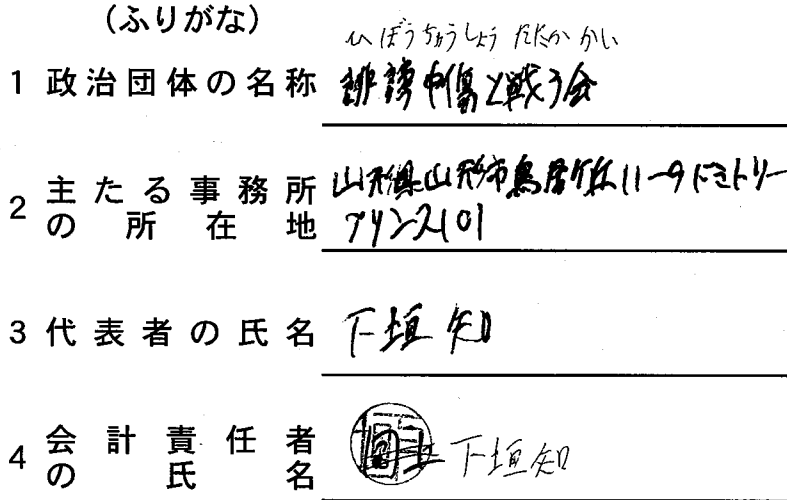 (ふりがな)
ひぼうちゅうしょう たたかう かい
1 政治団体の名称 誹謗中傷と戦う会
2 主たる事務所の所在地 山形県山形市鳥居ケ丘11-9ドミトリー
プリンス101
3 代表者の氏名 下垣知
4 会計責任者の氏名 下垣知